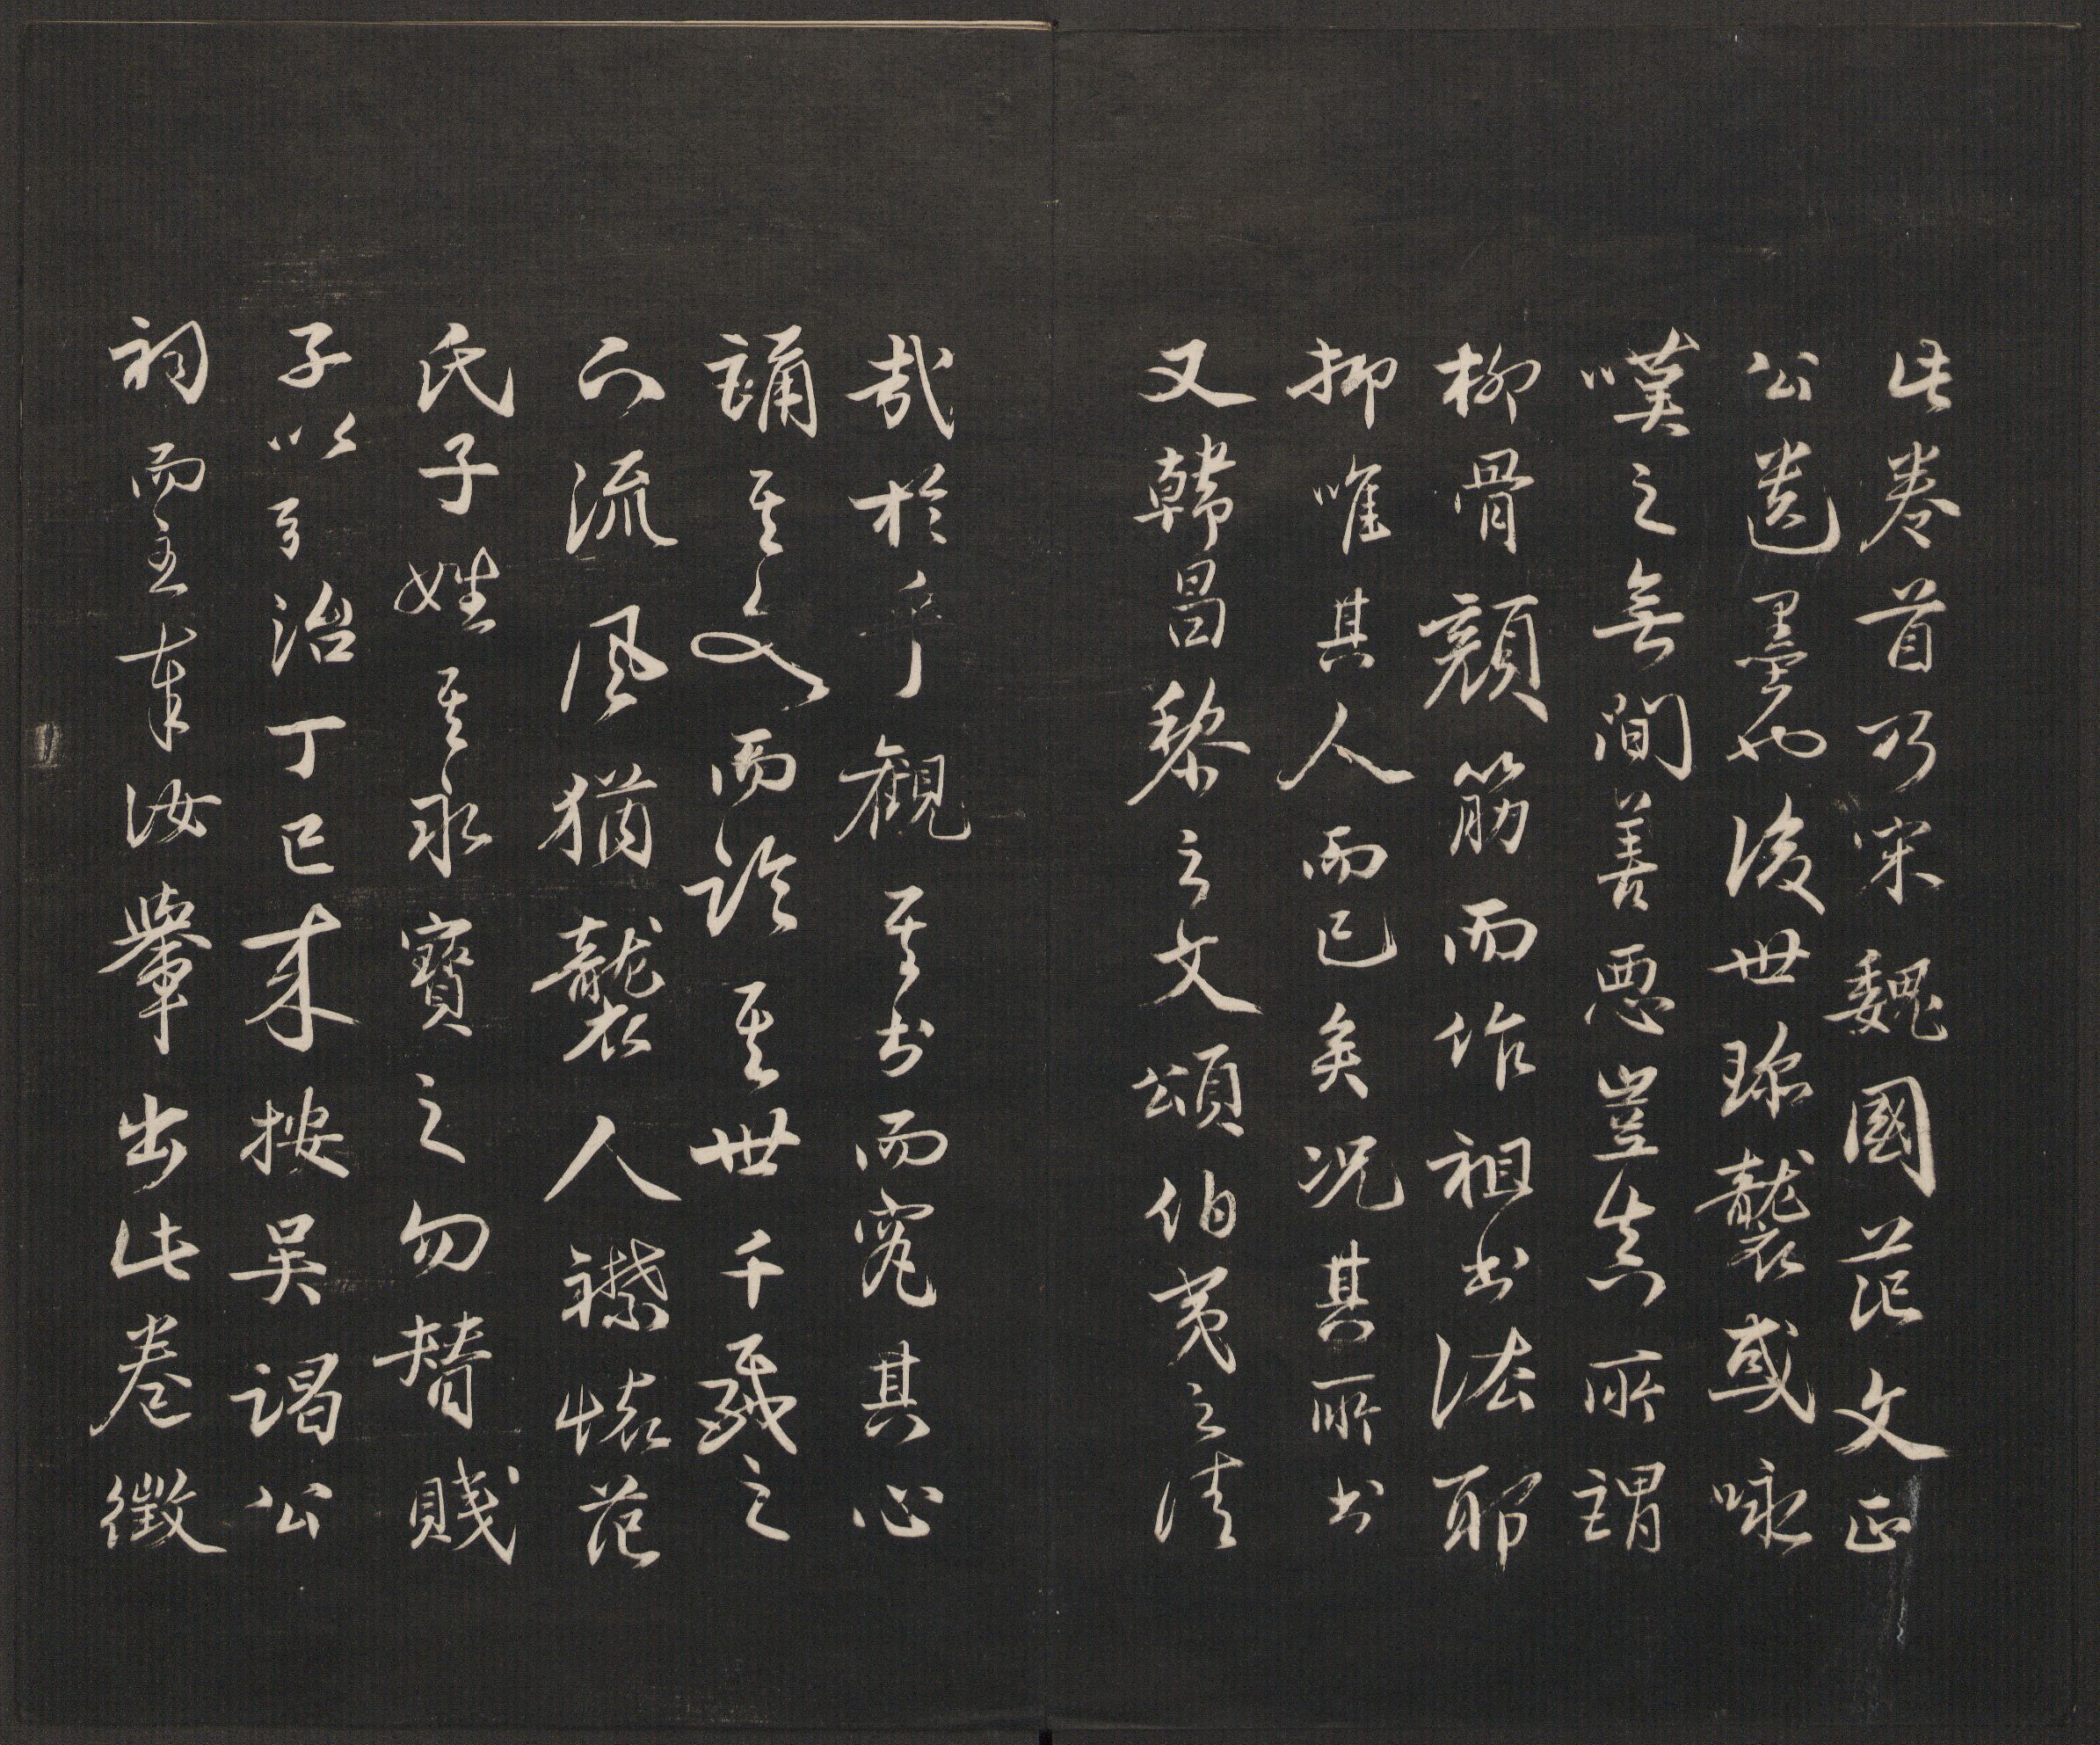 此卷首乃宋魏國范文正
公遺墨也後世珍襲或咏
嘆之無間善惡豈真所謂
柳骨顏筋而作祖書法耶
抑唯其人而已矣况其所书
又韓昌黎之文頌伯夷之清
哉於乎觀其书而究其心
誦其文而論其世千載之
下流風猶襲人襟懷范
氏子姓其永寶之勿替賤
子以弘治丁巳来按吴謁公
祠而主奉汝輩出此卷徵